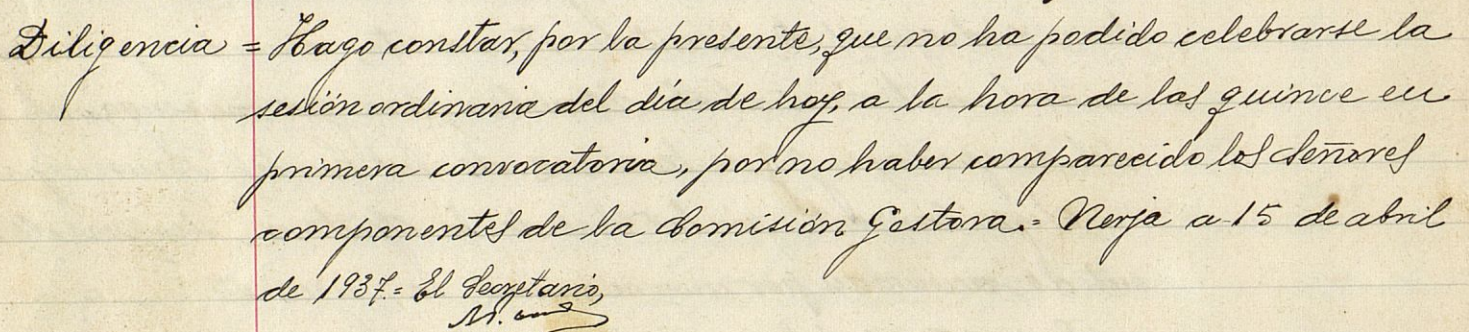 Diligencia = Hago constar, por la presente, que no ha podido celebrarse la
sesión ordinaria del día de hoy, a la hora de las quince en
primera convocatoria, por no haber comparecido los Señores
componentes de la Comisión Gestora.= Nerja a 15 de abril
de 1937.= El Secretario,